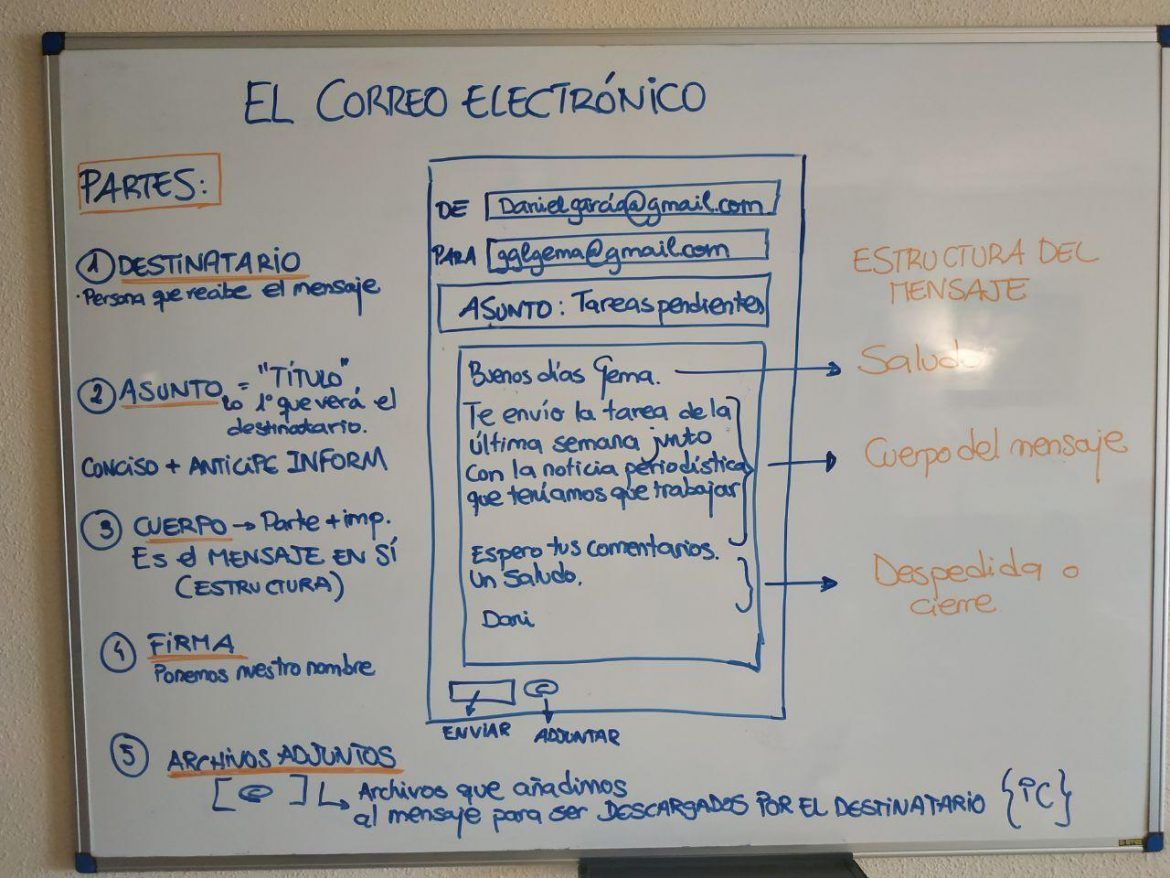 EL CORREO ELECTRÓNICO
PARTES:
1 DESTINATARIO
· Persona que recibe el mensaje
2 ASUNTO = "TÍTULO"
lo 1º que verá el
destinatario.
CONCISO + ANTICIPE INFORM
3 CUERPO → Parte + imp.
Es el MENSAJE EN SÍ
(ESTRUCTURA)
4 FIRMA
Ponemos nuestro nombre
5 ARCHIVOS ADJUNTOS
Archivos que añadimos
al mensaje para ser DESCARGADOS POR EL DESTINATARIO {PC}
DE Danielgarcía@gmail.com
PARA gglgema@gmail.com
ASUNTO: Tareas pendientes
Buenos días Gema.
Te envío la tarea de la
última semana junto
con la noticia periodística
que teníamos que trabajar
Espero tus comentarios.
Un Saludo.
Dani
ENVIAR ADJUNTAR
ESTRUCTURA DEL
MENSAJE
Saludo
Cuerpo del mensaje
Despedida o
cierre